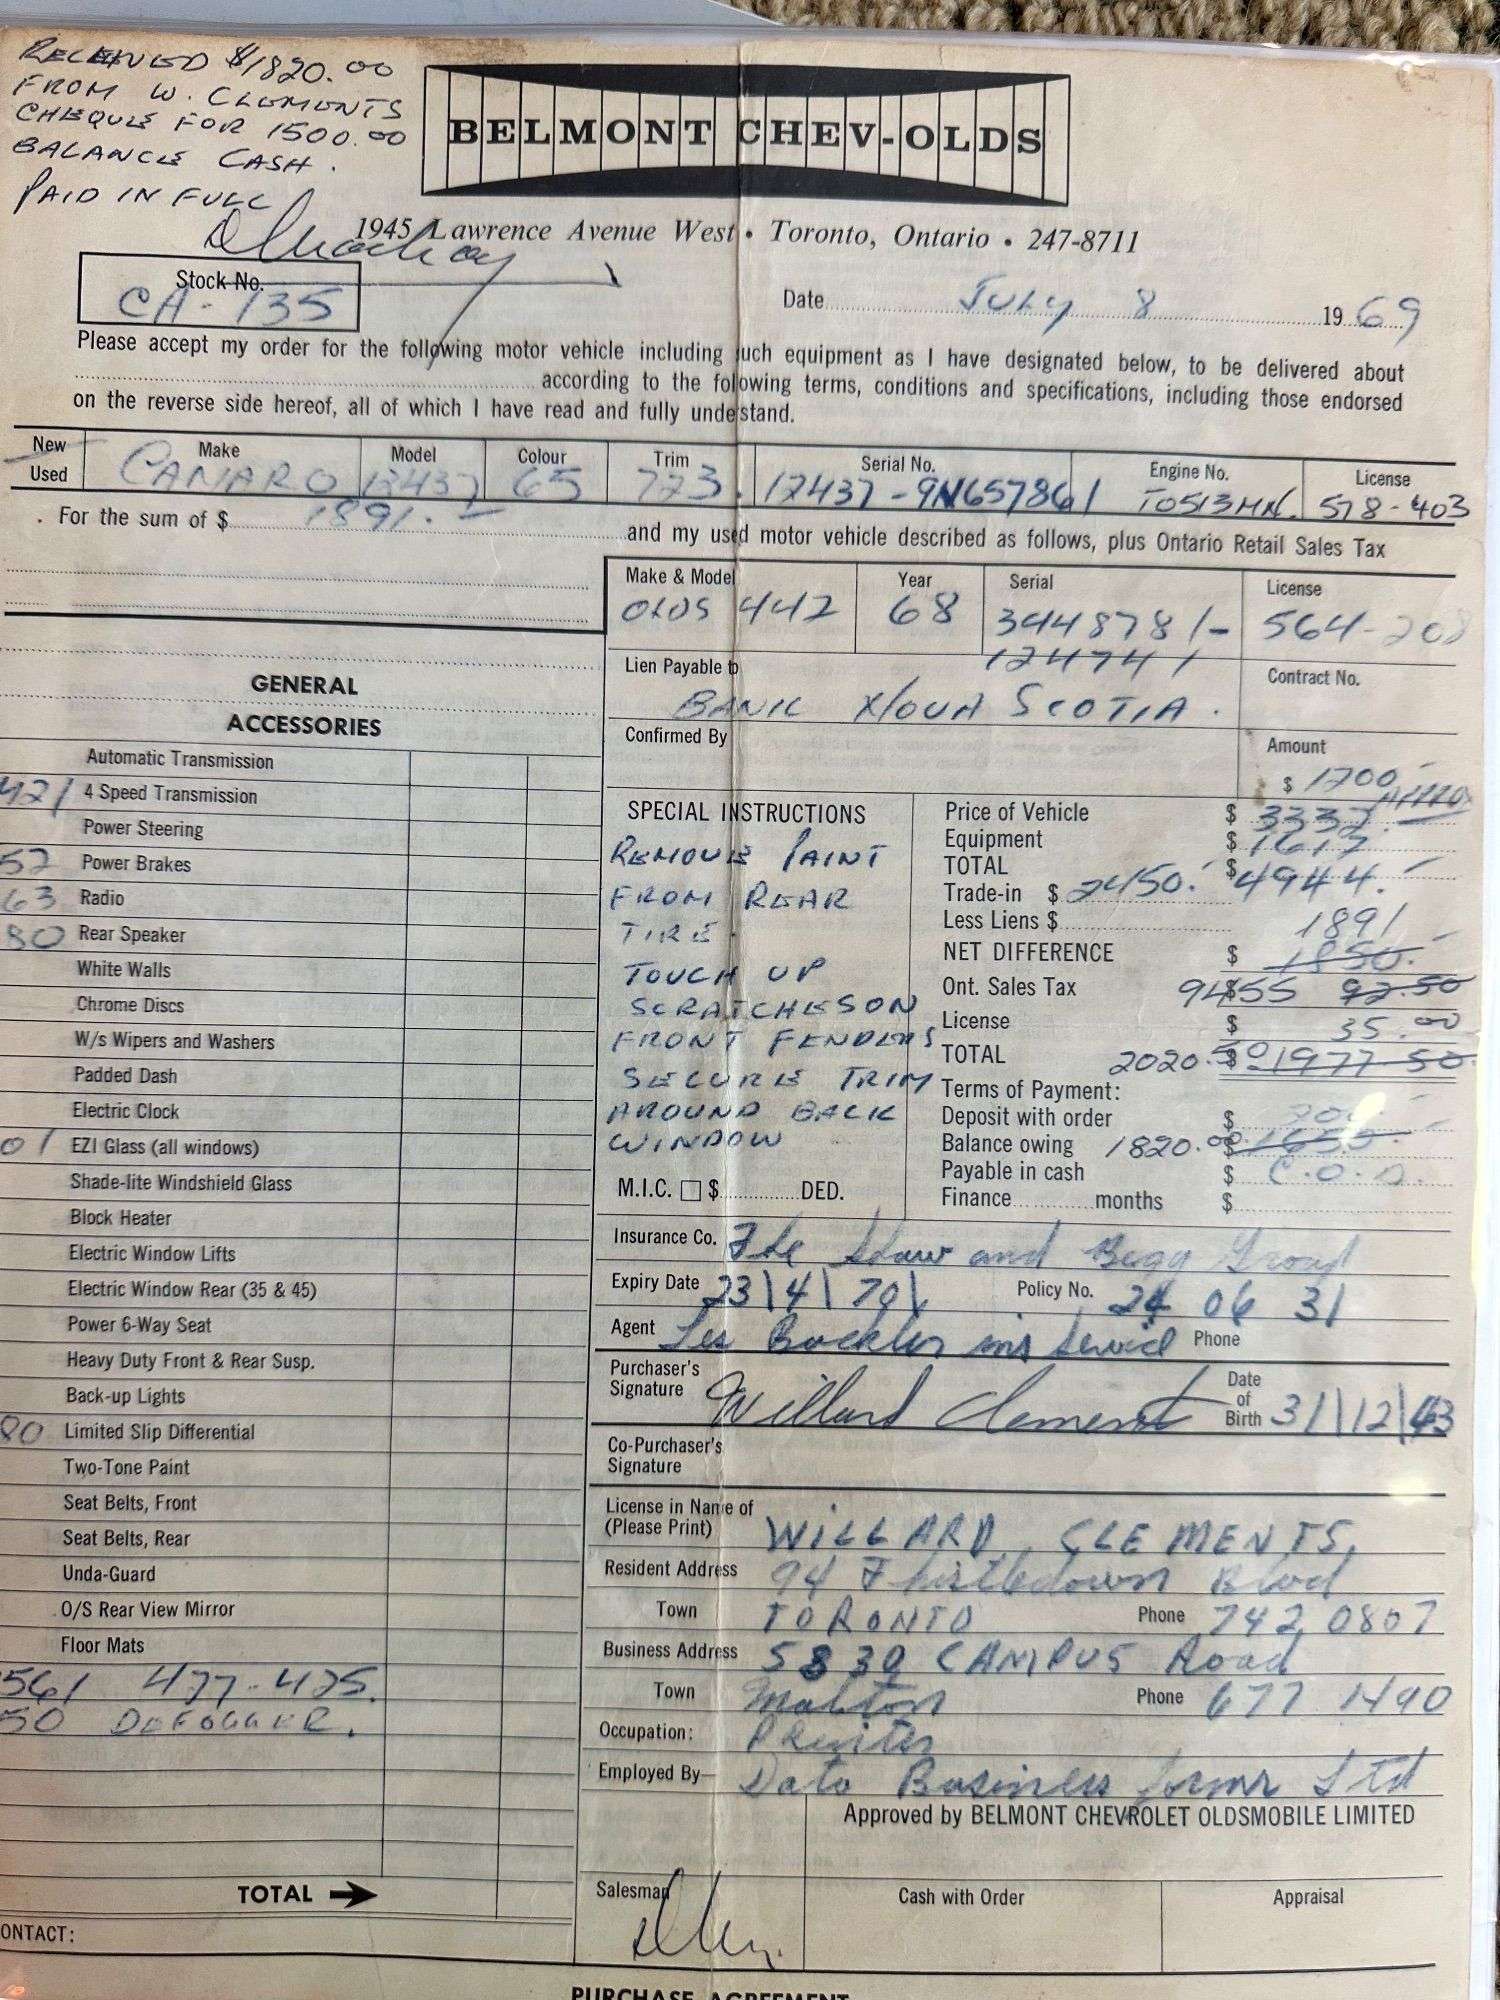 RECEIVED $1820.00
FROM W. CLEMENTS
CHEQUE FOR 1500.00
BALANCE CASH.
PAID IN FULL
BELMONT CHEV-OLDS
1945 Lawrence Avenue West • Toronto, Ontario • 247-8711
Stock No.
CA-135
Date JULY 8 1969
Please accept my order for the following motor vehicle including such equipment as I have designated below, to be delivered about
according to the following terms, conditions and specifications, including those endorsed
on the reverse side hereof, all of which I have read and fully understand.
New Used Make Model Colour Trim Serial No. Engine No. License
CAMARO 12437 65 723. 12437-9N657861 T0513MN. 578-403
For the sum of $ 1891.- and my used motor vehicle described as follows, plus Ontario Retail Sales Tax
Make & Model Year Serial License
OLDS 442 68 344878/- 564-208
124741
Lien Payable to Contract No.
BANK NOVA SCOTIA.
Confirmed By Amount
$ 1700 APPROX
GENERAL
ACCESSORIES
Automatic Transmission
421 4 Speed Transmission
Power Steering
52 Power Brakes
63 Radio
80 Rear Speaker
White Walls
Chrome Discs
W/s Wipers and Washers
Padded Dash
Electric Clock
01 EZI Glass (all windows)
Shade-lite Windshield Glass
Block Heater
Electric Window Lifts
Electric Window Rear (35 & 45)
Power 6-Way Seat
Heavy Duty Front & Rear Susp.
Back-up Lights
80 Limited Slip Differential
Two-Tone Paint
Seat Belts, Front
Seat Belts, Rear
Unda-Guard
O/S Rear View Mirror
Floor Mats
561 477-475.
50 DEFOGGER.
TOTAL
ONTACT:
SPECIAL INSTRUCTIONS
REMOVE PAINT
FROM REAR
TIRE.
TOUCH UP
SCRATCHES ON
FRONT FENDERS
SECURE TRIM
AROUND BACK
WINDOW
M.I.C. $ DED.
Price of Vehicle $ 3332.
Equipment $ 1617
TOTAL $ 4944.-
Trade-in $ 2450.-
Less Liens $ 1891
NET DIFFERENCE $ 1850.-
Ont. Sales Tax 9455 $ 92.50
License $ 35.00
TOTAL 2020.50 $ 1977 50
Terms of Payment:
Deposit with order $ 200.-
Balance owing 1820.00 $ 1650.-
Payable in cash $ C.O.D.
Finance months $
Insurance Co. The Shaw and Begg Group
Expiry Date 23\4\70\ Policy No. 24 06 31
Agent Les Buckler ins Service Phone
Purchaser's Signature Willard Clements Date of Birth 31\12\43
Co-Purchaser's Signature
License in Name of (Please Print) WILLARD CLEMENTS.
Resident Address 94 Thistledown Blvd
Town TORONTO Phone 742 0807
Business Address 5830 CAMPUS Road
Town Malton Phone 677 1490
Occupation: Printer
Employed By Data Business forms Ltd
Approved by BELMONT CHEVROLET OLDSMOBILE LIMITED
Salesman Cash with Order Appraisal
PURCHASE AGREEMENT